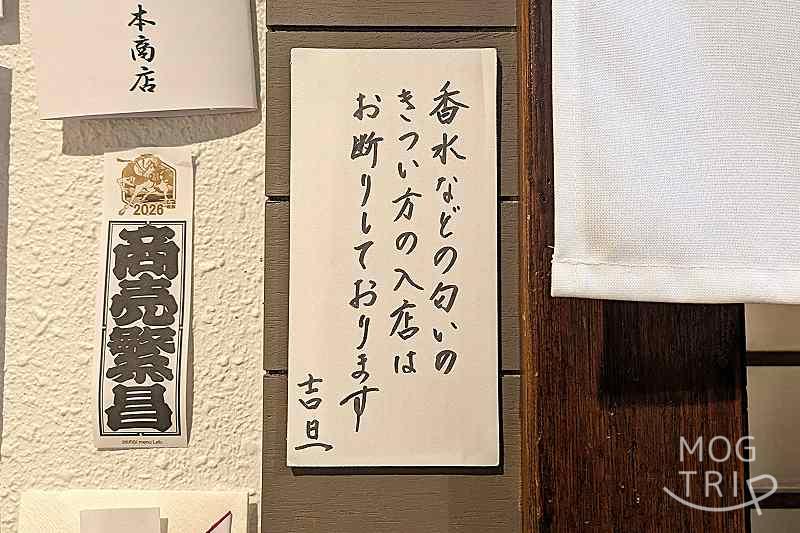 香水などの匂いの
きつい方の入店は
お断りしております
吉旦
本商店
2026
商売繁昌
MOG
TRIP